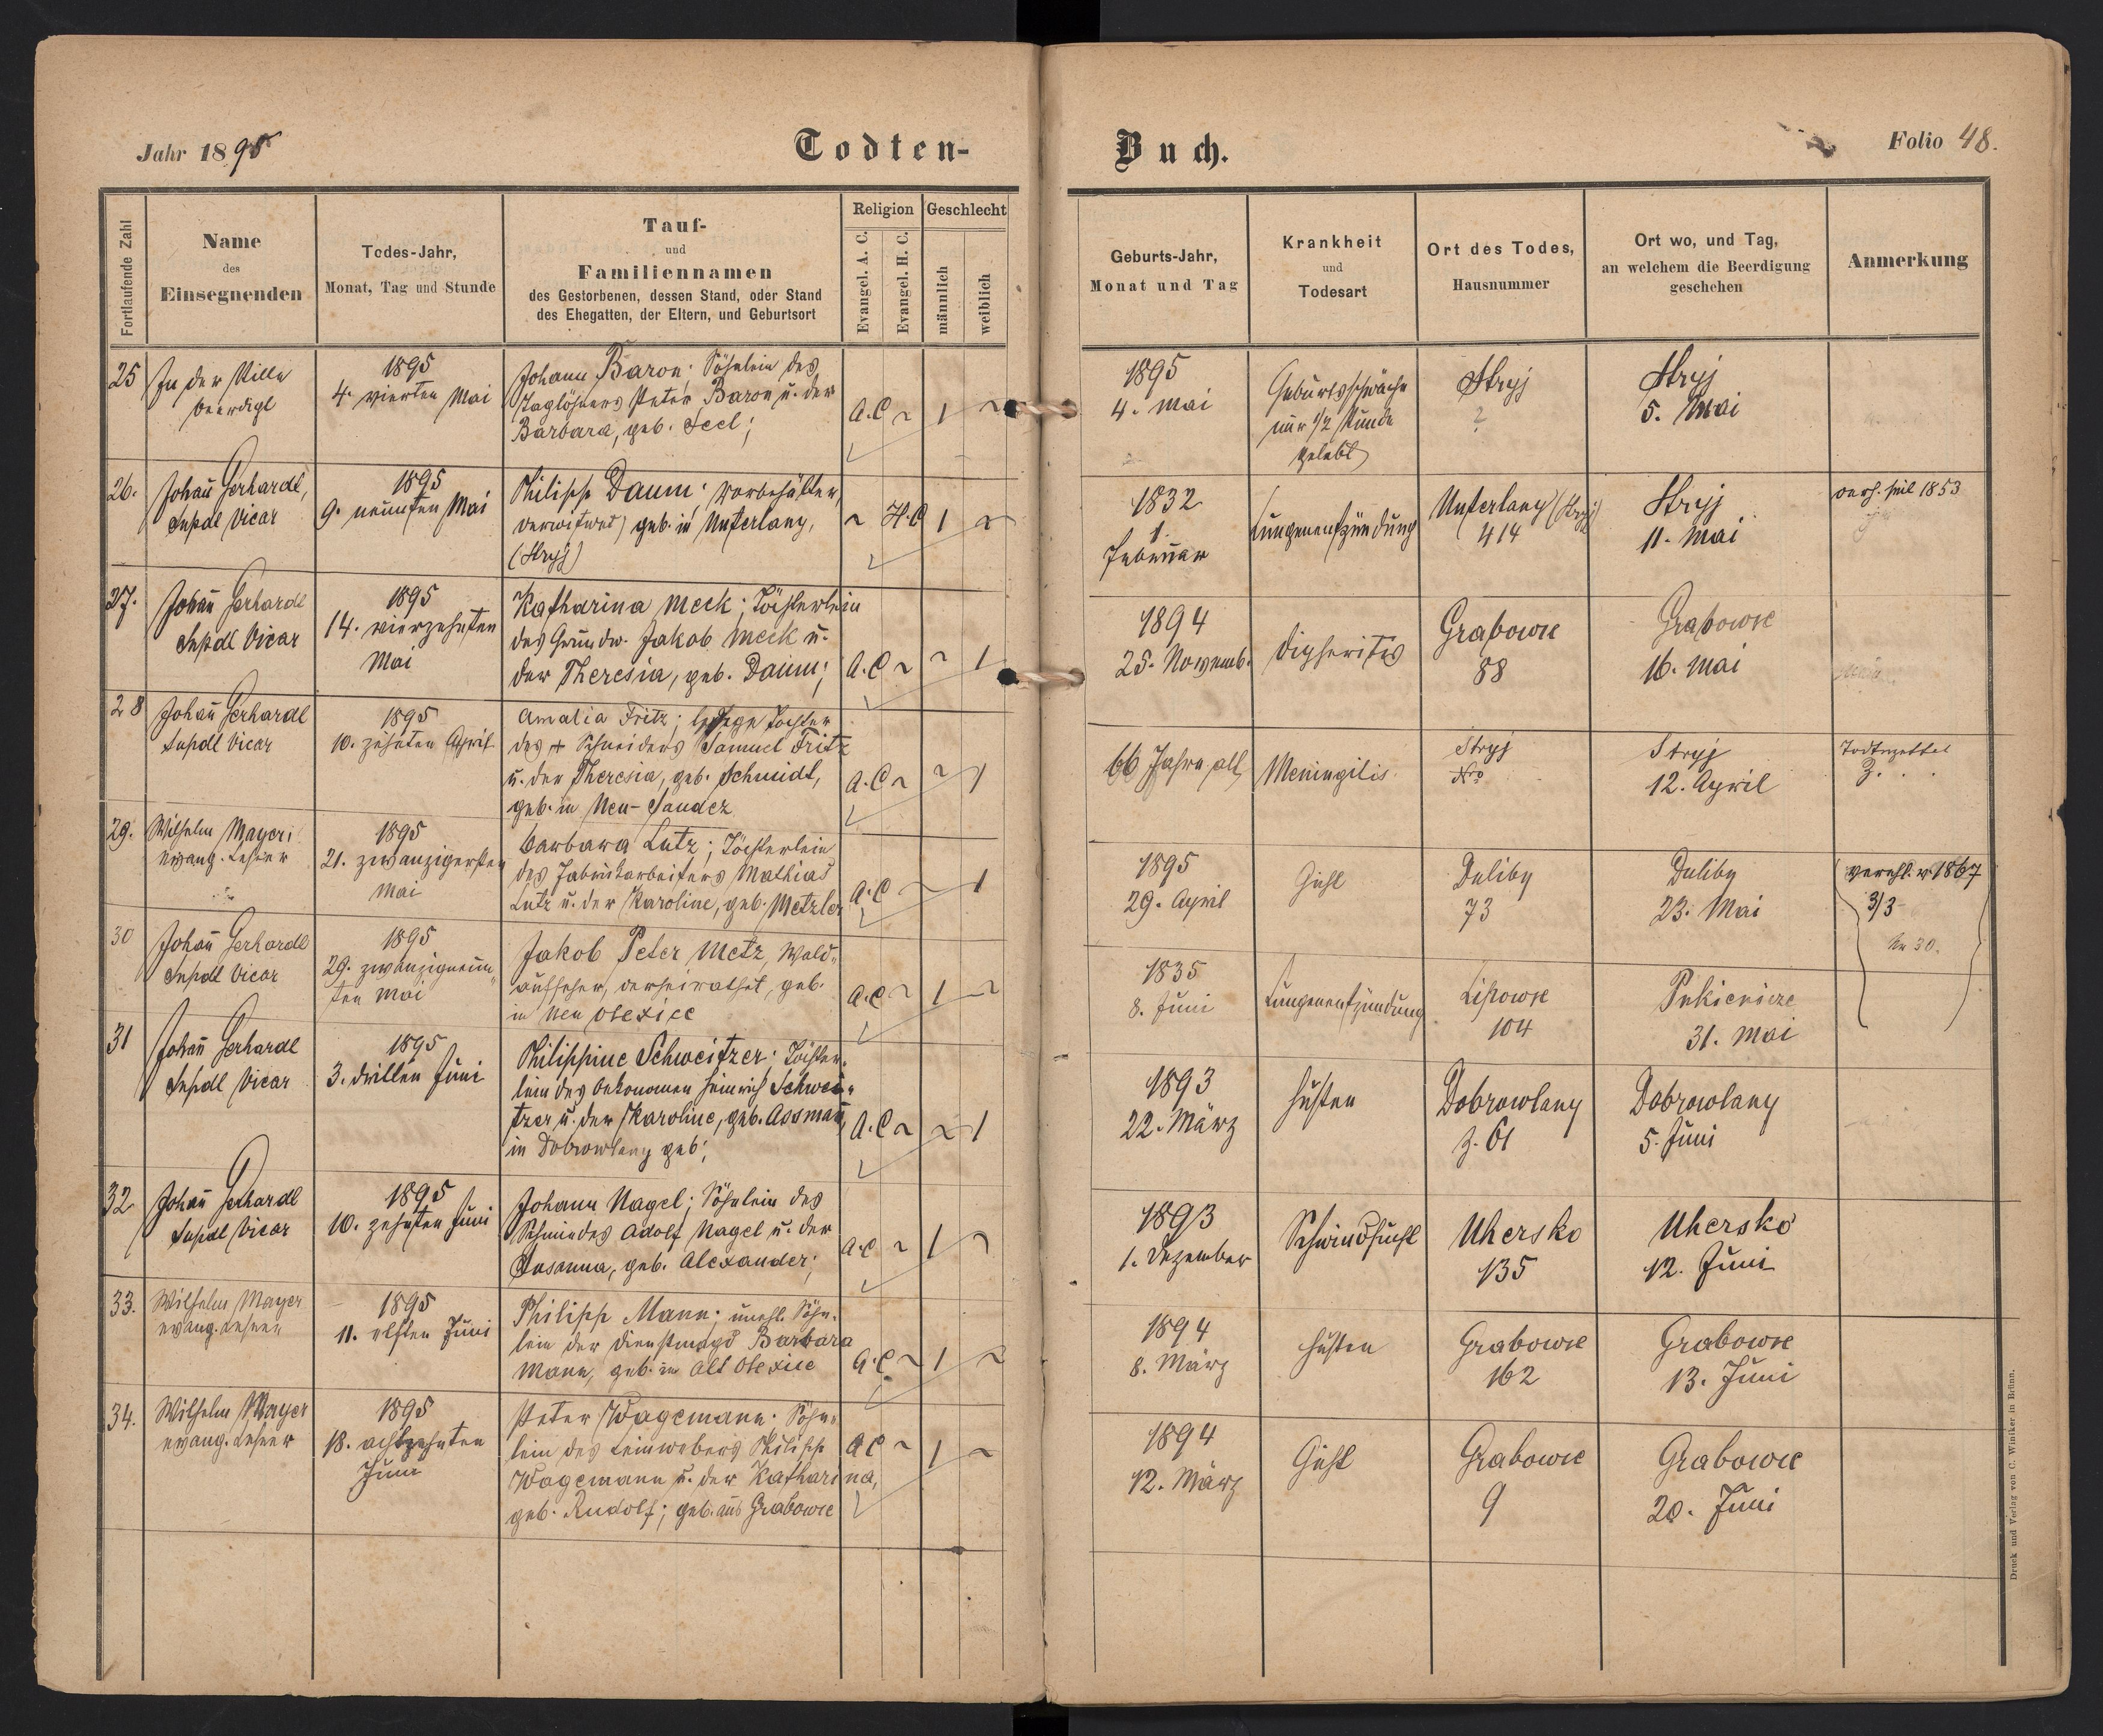 Jahr 1895
Todten-
Buch.
Folio 48.
Fortlaufende Zahl
Name
des
Einsegnenden
Todes-Jahr,
Monat, Tag und Stunde
Tauf-
und
Familiennamen
des Gestorbenen, dessen Stand, oder Stand
des Ehegatten, der Eltern, und Geburtsort
Religion
Evangel. A. C.
Evangel. H. C.
Geschlecht
männlich
weiblich
Geburts-Jahr,
Monat und Tag
Krankheit
und
Todesart
Ort des Todes,
Hausnummer
Ort wo, und Tag,
an welchem die Beerdigung
geschehen
Anmerkung
25
In der Stille
beerdigt
1895
4. vierten Mai
Johann Baron; Söhnlein des
Taglöhners Peter Baron u. der
Barbara, geb. Seel;
A.C ~ 1 ~
1895
4. Mai
Geburtsschwäche
nur 1/2 Stunde
gelebt
Stryj
?
Stryj
5. Mai
26.
Johan̄ Gerhardt,
Supdl Vicar
1895
9. neunten Mai
Philipp Daum; Vorbehälter,
verwitwet, geb. in Unterlany,
(Stryj)
~ H.C 1 ~
1832
1.
Februar
Lungenentzündung
Unterlany (Stryj)
414
Stryj
11. Mai
verh. seit 1853
27.
Johan̄ Gerhardt
Supdl Vicar
1895
14. vierzehnten
Mai
Katharina Meck; Töchterlein
des Grundw. Jakob Meck u.
der Theresia, geb. Daum;
A.C ~ ~ 1
1894
25. Novemb.
Dipheritis
Grabowce
88
Grabowce
16. Mai
28
Johan̄ Gerhardt
Supdl Vicar
1895
10. zehnten April
Amalia Fritz; ledige Tochter
des + Schneiders Samuel Fritz
u. der Theresia, geb. Schmidt,
geb. in Neu-Sandez
A.C ~ ~ 1
66 Jahre alt
Meningitis
Stryj
Nro
Stryj
12. April
Todtenzettel
Z. . .
29.
Wilhelm Mayer,
evang. Lehrer
1895
21. zwanzigersten
Mai
Barbara Lutz; Töchterlein
des Fabriksarbeiters Mathias
Lutz u. der Karoline, geb. Metzler
A.C ~ 1
1895
29. April
Gicht
Duliby
73
Duliby
23. Mai
verehl. v. 1867
3/3
No 30.
30
Johan̄ Gerhardt
Supdl Vicar
1895
29. zwanzigneun-
ten Mai
Jakob Peter Metz, Wald-
aufseher, verheirathet, geb.
in Neu Olexice
A.C ~ 1 ~
1835
8. Juni
Lungenentzündung
Lipowce
104
Pukienicze
31. Mai
31
Johan̄ Gerhardt
Supdl Vicar
1895
3. dritten Juni
Philippine Schweitzer; Töchter-
lein des Oekonomen Heinrich Schwei-
tzer u. der Karoline, geb. Assman̄,
in Dobrowlany geb;
A.C ~ ~ 1
1893
22. März
Husten
Dobrowlany
Z. 61
Dobrowlany
5. Juni
32
Johan̄ Gerhardt
Supdl Vicar
1895
10. zehnten Juni
Johann Nagel; Söhnlein des
Schmiedes Adolf Nagel u. der
Susanna, geb. Alexander;
A.C ~ 1 ~
1893
1. Dezember
Schwindsucht
Uhersko
135
Uhersko
12. Juni
33.
Wilhelm Mayer
evang. Lehrer
1895
11. elften Juni
Philipp Mann; unehl. Söhn-
lein der Dienstmagd Barbara
Mann, geb. in Alt Olexice
A.C ~ 1 ~
1894
8. März
Husten
Grabowce
162
Grabowce
13. Juni
34.
Wilhelm Mayer
evang. Lehrer
1895
18. achtzehnten
Juni
Peter Wagemann; Söhn-
lein des Leinwebers Philipp
Wagemann u. der Katharina,
geb. Rudolf; geb. aus Grabowce
A C ~ 1 ~
1894
12. März
Gicht
Grabowce
9
Grabowce
20. Juni
Druck und Verlag von C. Winiker in Brünn.